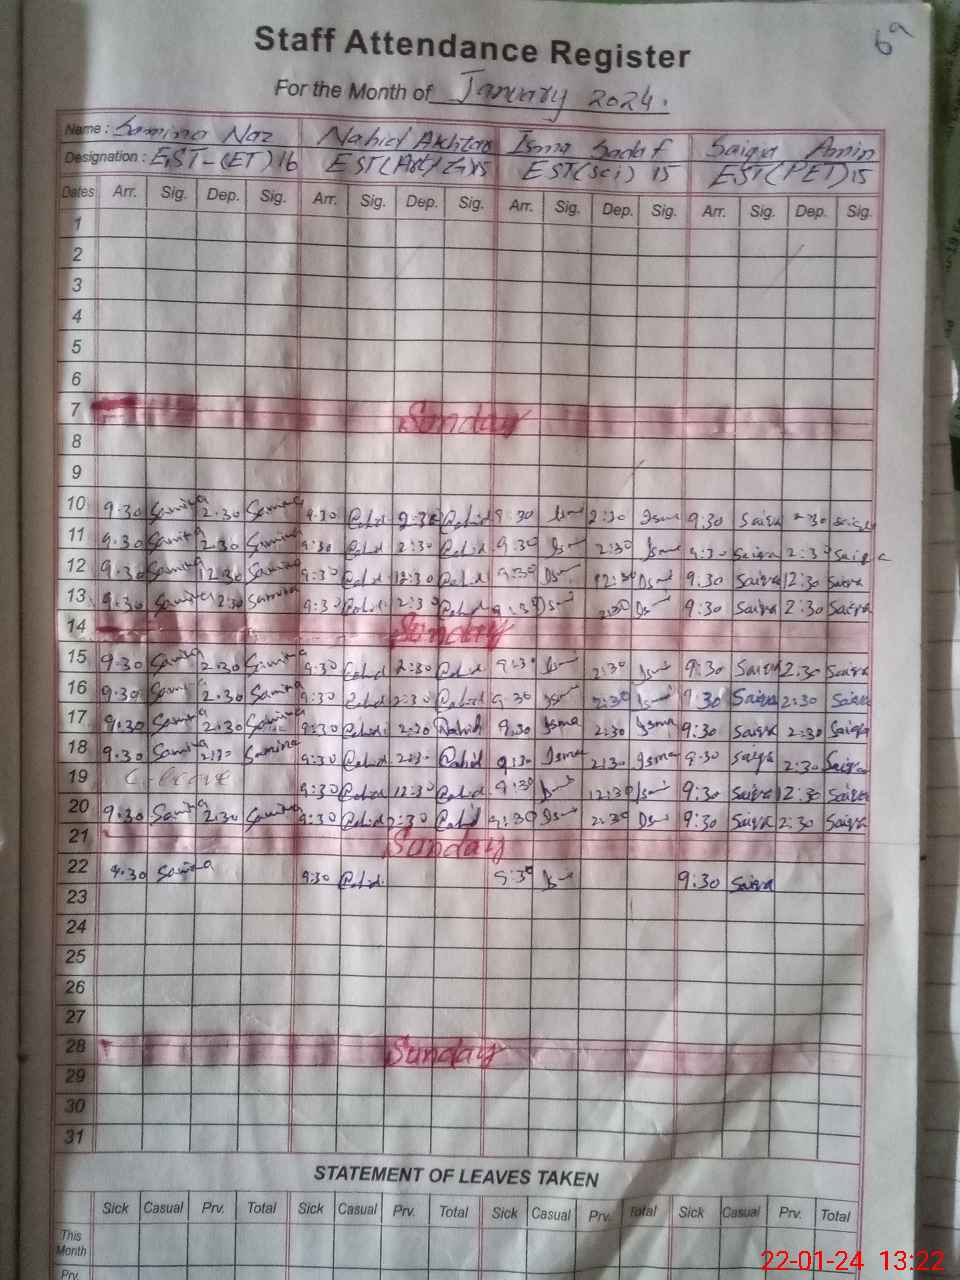 6a
Staff Attendance Register
For the Month of January 2024.
Name: Samina Naz Nahid Akhtar Isma Sadaf Saiqa Amin
Designation: EST-(ET) 16 EST( 15 EST(Sci) 15 EST(PET)15
Dates Arr. Sig. Dep. Sig. Arr. Sig. Dep. Sig. Arr. Sig. Dep. Sig. Arr. Sig. Dep. Sig.
1
2
3
4
5
6
7 Sunday
8
9
10 9.30 Samina 2.30 Samina 9:30 2:30 9:30 Isma 2:30 Isma 9:30 Saiqa 2:30 Saiqa
11 9.30 Samina 2.30 Samina 9:30 2:30 9:30 Isma 2:30 Isma 9:30 Saiqa 2:30 Saiqa
12 9.30 Samina 12.30 Samina 9:30 12:30 9:30 Isma 12:30 Isma 9.30 Saiqa 12:30 Saiqa
13 9.30 Samina 2.30 Samina 9:30 2:30 9:30 Isma Isma 9:30 Saiqa 2:30 Saiqa
14 Sunday
15 9.30 Samina 2.30 Samina 9:30 2:30 9:30 Isma 2:30 Isma 9:30 Saiqa 2:30 Saiqa
16 9.30 Samina 2.30 Samina 9:30 2:30 9:30 Isma 2:30 Isma 9:30 Saiqa 2:30 Saiqa
17 9.30 Samina 2.30 Samina 9:30 2:30 Nahid 9:30 Isma 2:30 Isma 9:30 Saiqa 2:30 Saiqa
18 9.30 Samina 2:30 Samina 9:30 2:30 9:30 Isma 2:30 Isma 9:30 Saiqa 2:30 Saiqa
19 C-leave 9:30 12:30 9:30 Isma 12:30 Isma 9:30 Saiqa 12:30 Saiqa
20 9.30 Samina 2.30 Samina 9:30 2:30 9:30 Isma 2:30 Isma 9:30 Saiqa 2:30 Saiqa
21 Sunday
22 9.30 Samina 9:30 9:30 Isma 9:30 Saiqa
23
24
25
26
27
28 Sunday
29
30
31
STATEMENT OF LEAVES TAKEN
Sick Casual Prv. Total Sick Casual Prv. Total Sick Casual Prv. Total Sick Casual Prv. Total
This
Month
Prv.
22-01-24 13:22